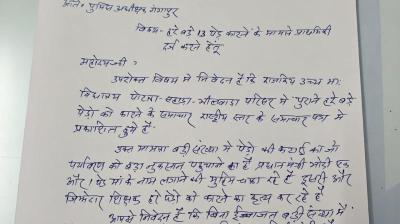 पुलिस अधीक्षक गंगापुर
विषय - हरे बड़े 13 पेड़ काटने के मामले प्राथमिकी
दर्ज करने हेतू
महोदयजी :-
उपरोक्त विषय में निवेदन है कि राजकिय उच्च मा.
विद्यालय पोटला - सहाड़ा - भीलवाड़ा परिसर में पुराने हरे बड़े
पेड़ो को काटने के समाचार राष्ट्रीय स्तर के समाचार पत्र में
प्रकाशित हुये है
उक्त मामला बड़ी संख्या में पेड़ो की कटाई का जो
पर्यावरण को बड़ा नुकसान पहुचाने का है प्रधानमंत्री मोदी एक
और 1 पेड़ मां के नाम लगाने की मुहिम चला रहे है दूसरी और
जिमेदार शिक्षक ही पेड़ो को काटने का कृत्य कर रहे है
आपसे निवेदन है कि बिना इजाजत बड़ी संख्या में